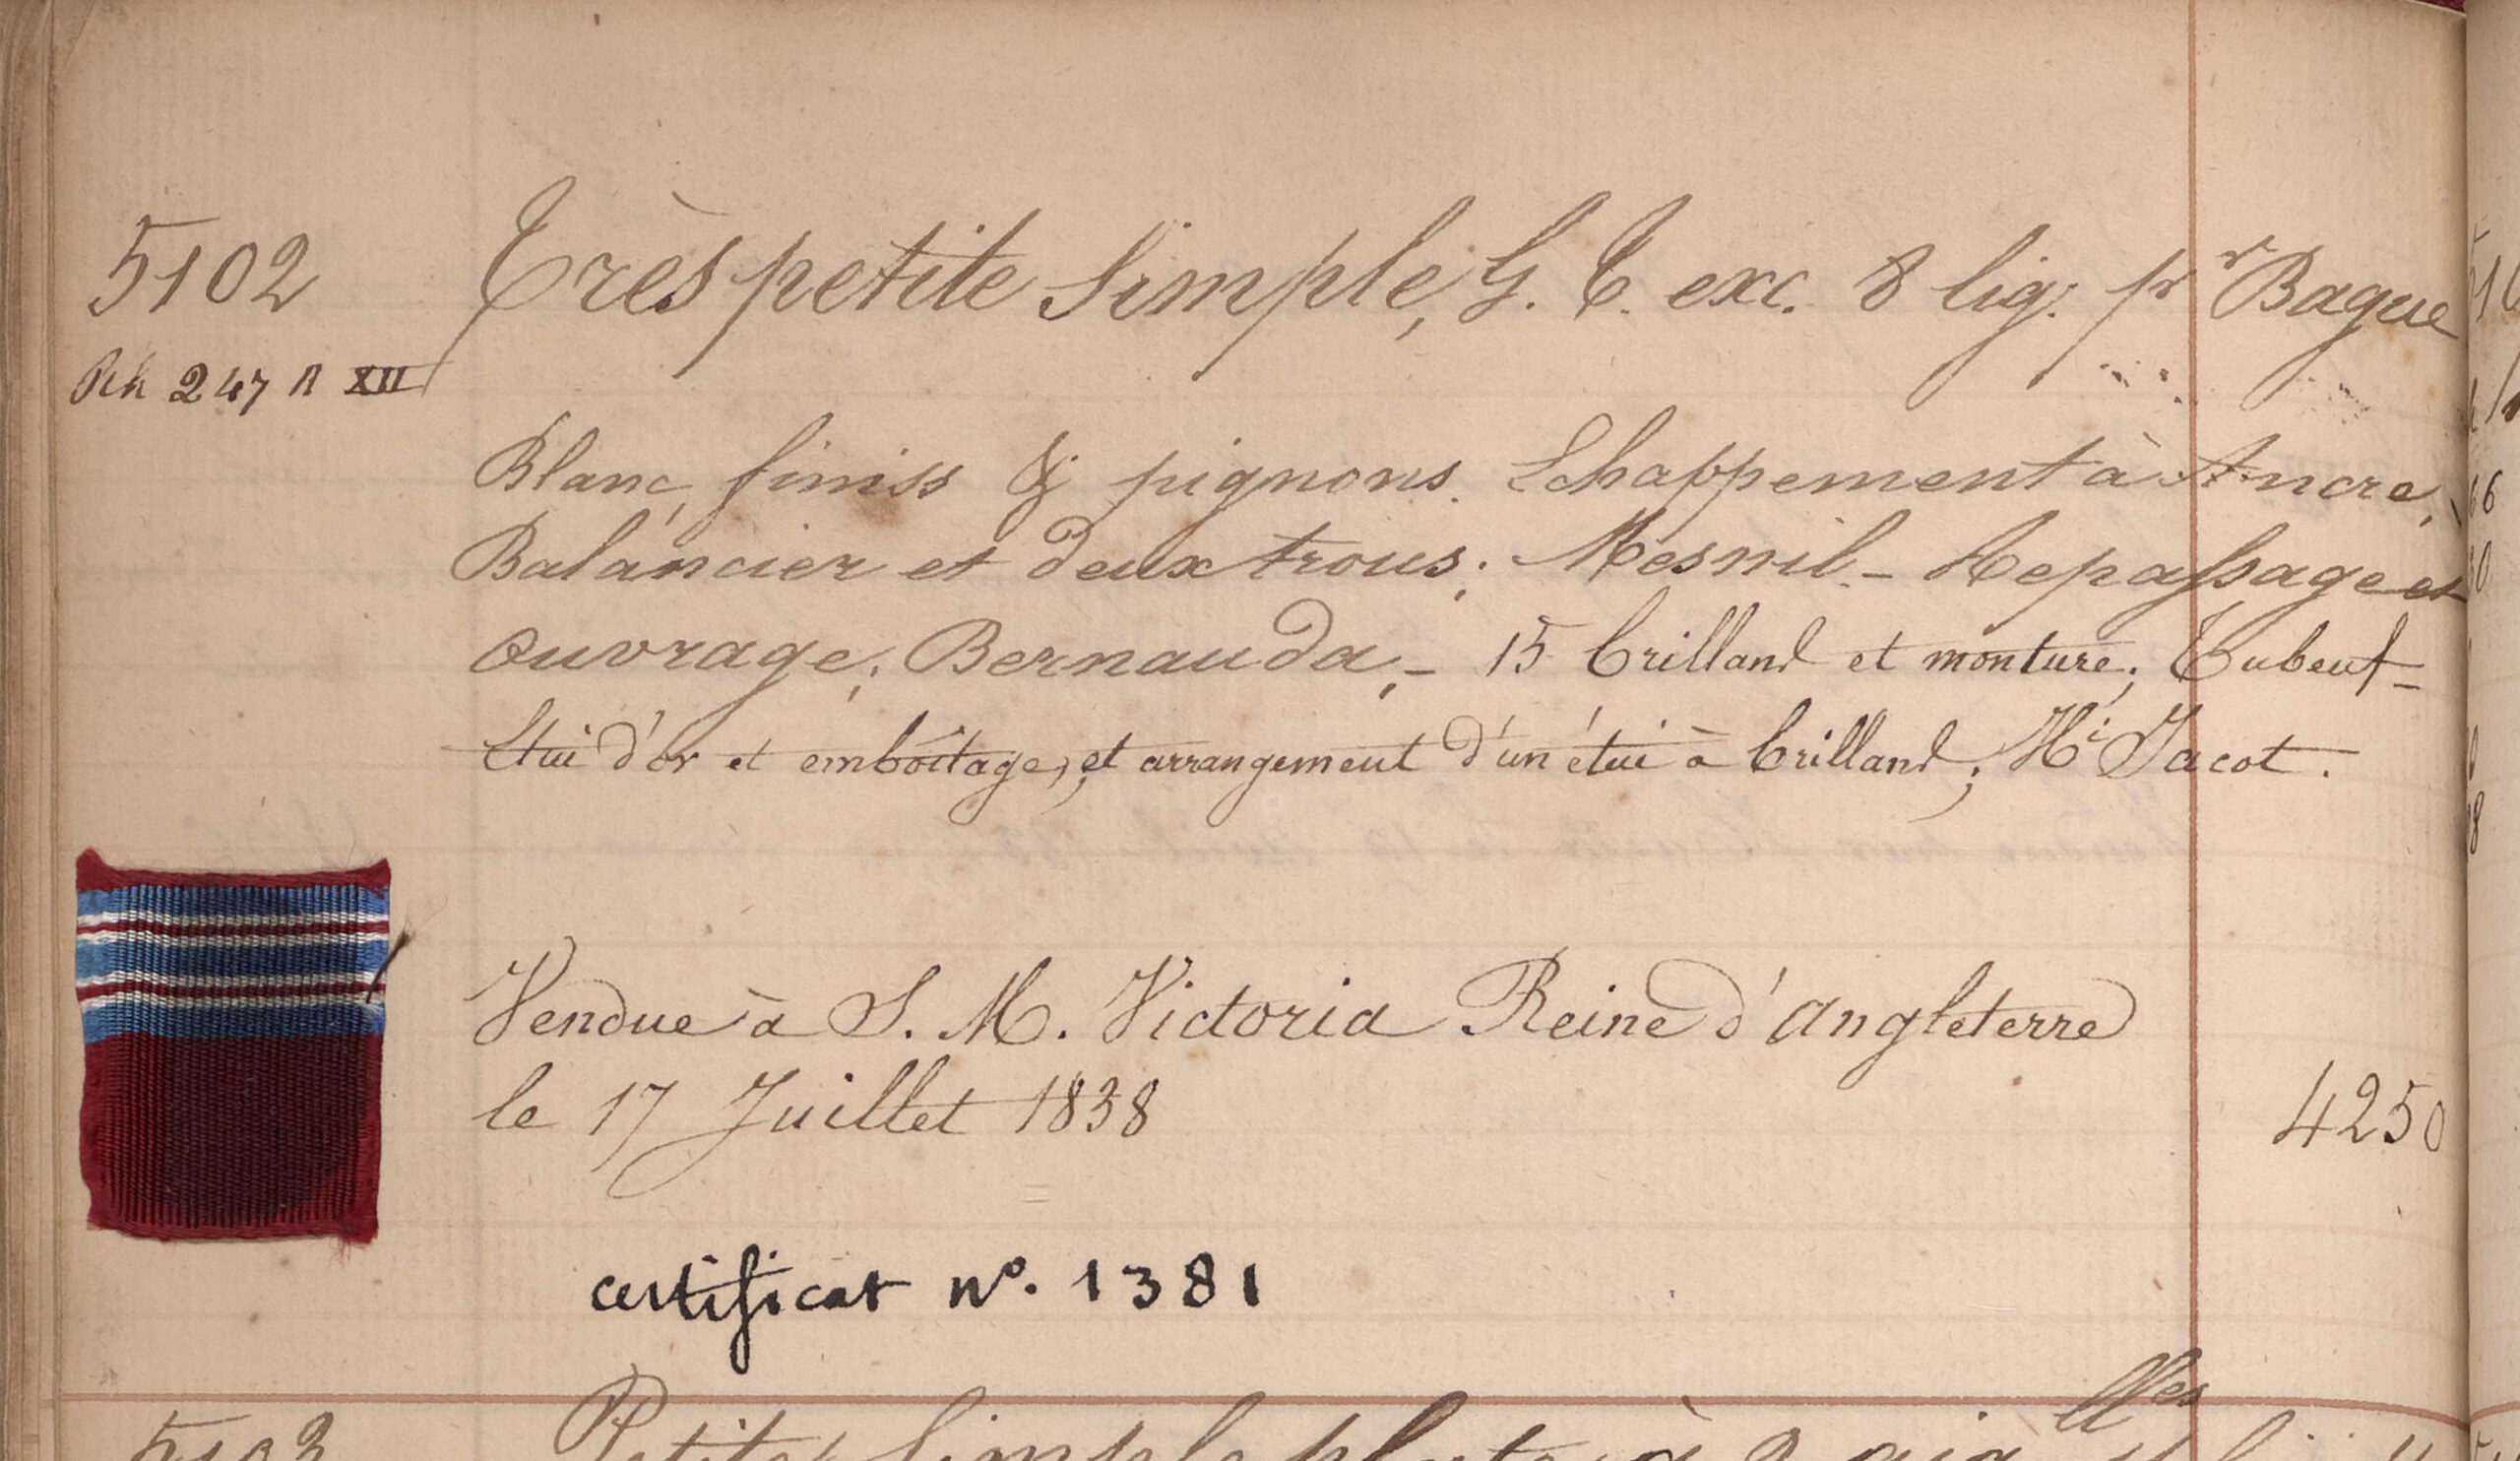 5102
Très petite Simple, G. T. exc. 8 lig. pr Bague
247 R XII
Blanc, finiss & pignons. Echappement à Ancre,
Balancier et deux trous; Mesnil - Repassage et
ouvrage; Bernauda, - 15 brilland et monture; Tubeuf -
Etui d'or et emboîtage, et arrangement d'un étui à brilland; Hi Jacot.
Vendue à S. M. Victoria Reine d'Angleterre
le 17 Juillet 1838
4250
certificat no. 1381
5103
Petite Simple plate à 2 aig lles